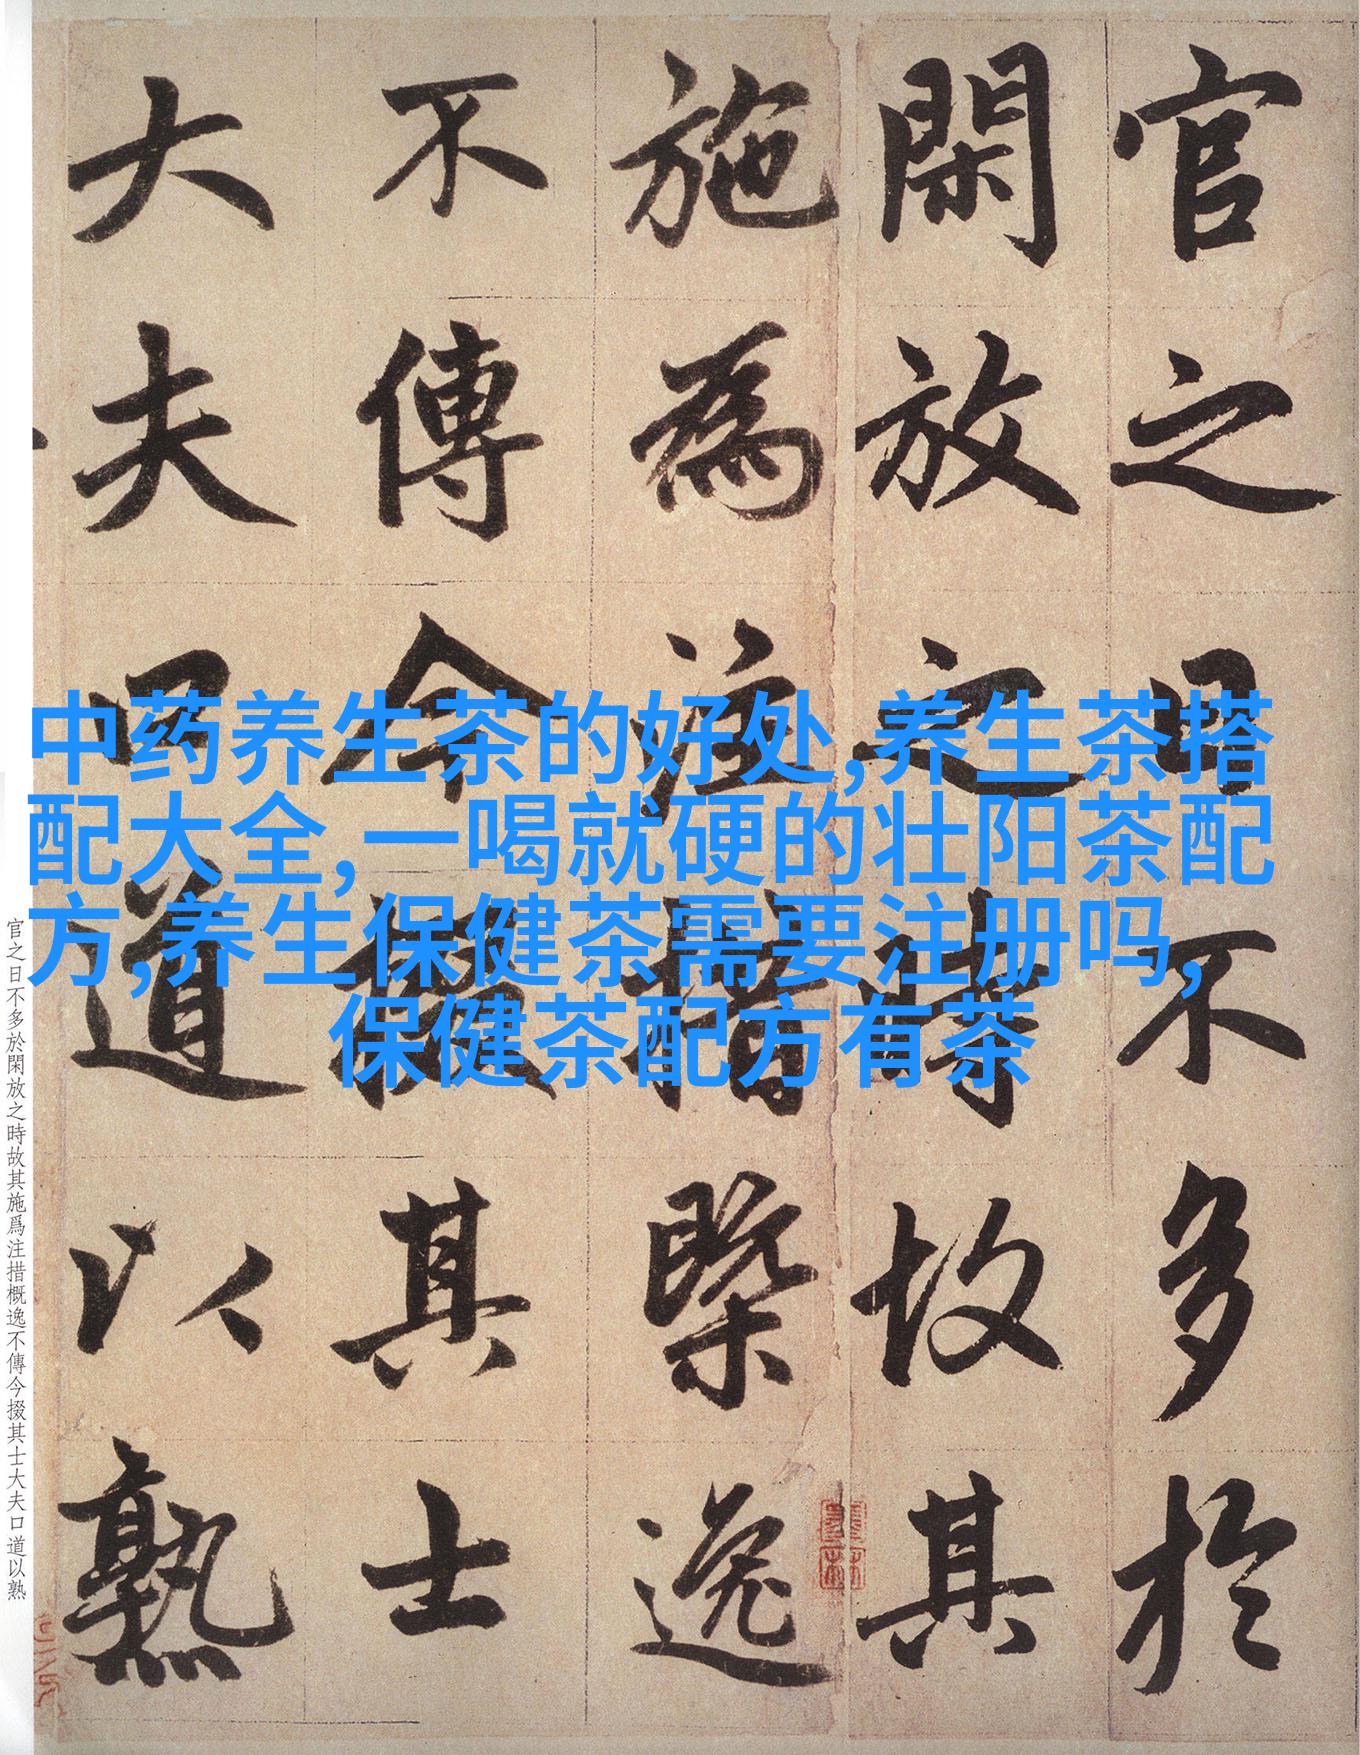 官之日不多於
閑放之時故其
施為注措槩逸
不傳今掇其士
大夫口道以熟
中药养生茶的好处,养生茶搭
配大全,一喝就硬的壮阳茶配
方,养生保健茶需要注册吗,
保健茶配方有茶
官之日不多於閑放之時故其施爲注措概逸不傳今掇其士大夫口道以熟